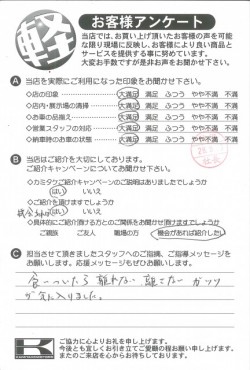 軽
お客様アンケート
当店では、お買い上げ頂いたお客様の声を可能
な限り現場に反映し、お客様により良い商品と
サービスを提供する事に努めています。
大変お手数ですが是非お声をお聞かせ下さい。
A 当店を実際にご利用になった印象をお聞かせ下さい。
◇店の印象 大満足 満足 ふつう やや不満 不満
◇店内・展示場の清掃 大満足 満足 ふつう やや不満 不満
◇お車の品揃え 大満足 満足 ふつう やや不満 不満
◇営業スタッフの対応 大満足 満足 ふつう やや不満
◇納車時のお車の状態 大満足 満足 ふつう やや不満
B 当店はご紹介を大切にしております。
ご紹介キャンペーンについてお聞かせ下さい。
◇カミタケご紹介キャンペーンのご説明はありましたでしょうか
はい いいえ
◇ご紹介を頂けますでしょうか
はい いいえ
◇具体的にご紹介頂ける方とのご関係をお聞かせ頂けますでしょうか
ご親族 ご友人 職場の方 機会があれば紹介したい
C 担当させて頂きましたスタッフへのご指摘、ご指導メッセージを
お願いします。応援メッセージもぜひお願いします。
食いついたら離れない 離さない ガッツ
が気に入りました。
K
ご協力に心よりお礼を申し上げます。
今後とも宜しくお引き立てご愛顧の程お願い申し上げます。
またのご来店を心からお待ちしております。